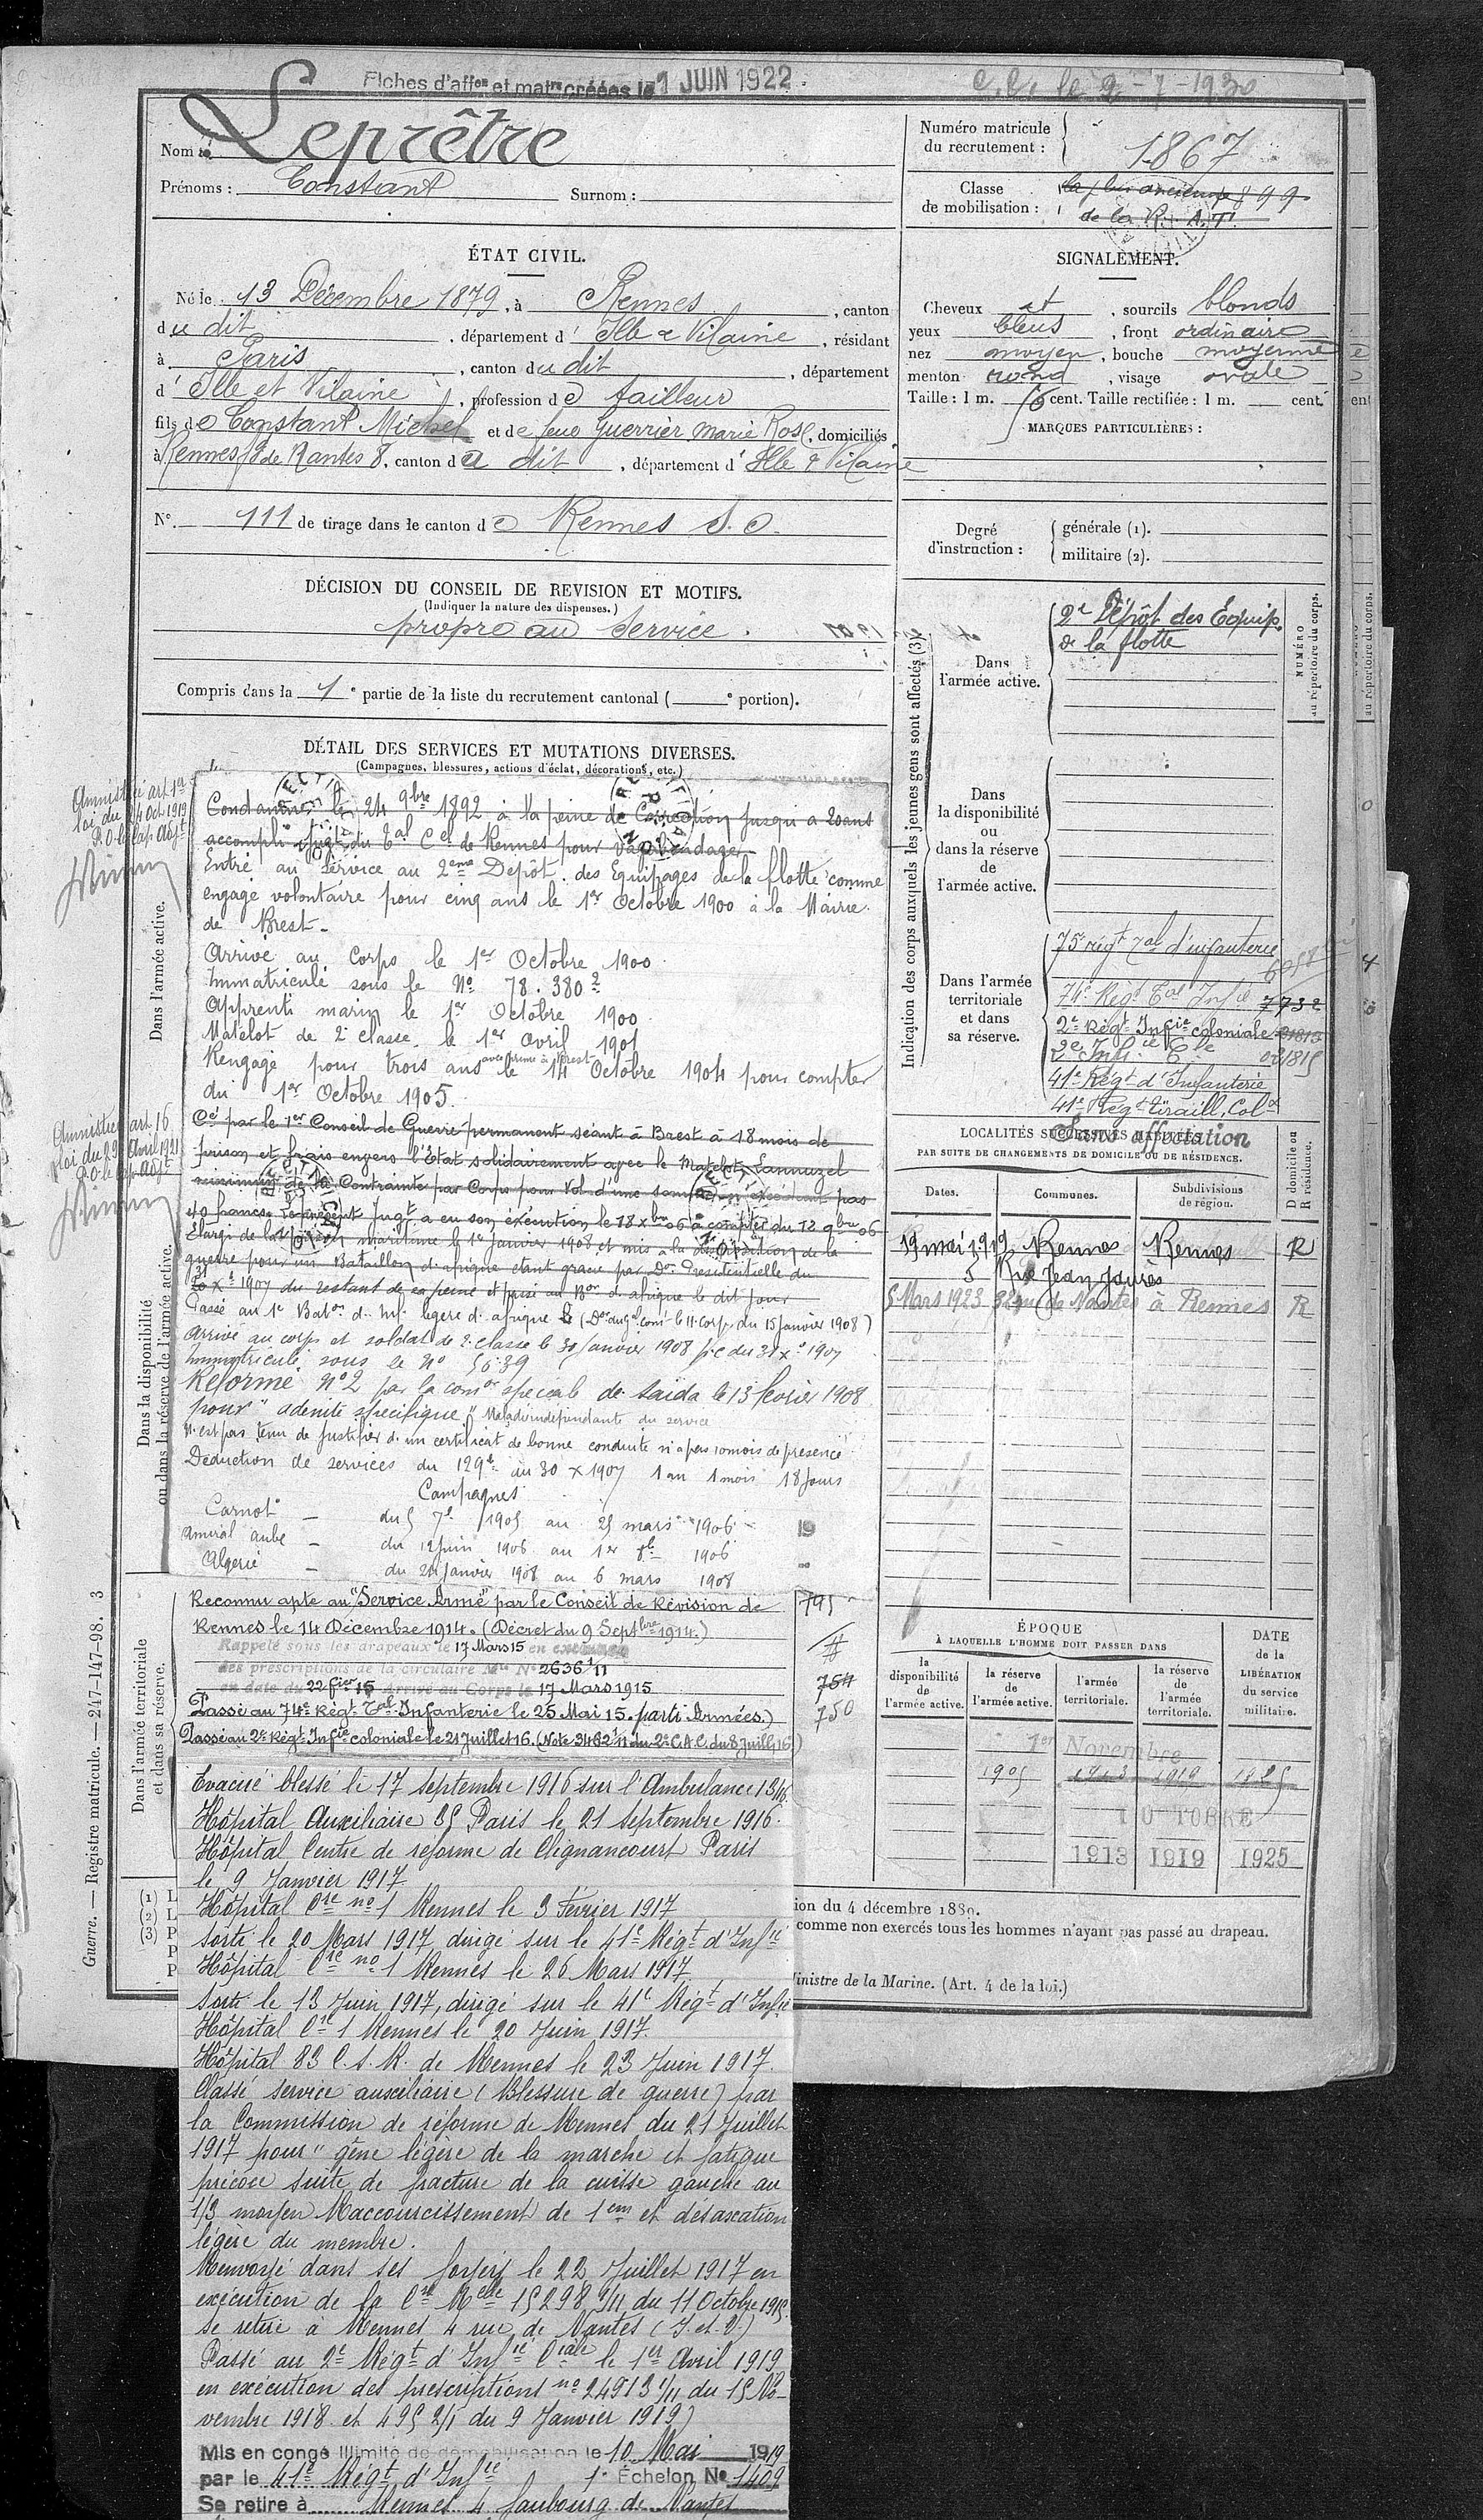 Fiches d'aff^on et mat^re créées le 1 JUIN 1922
C.C. le 2-7-1930
Nom : Leprêtre
Prénoms : Constant Surnom :
Numéro matricule du recrutement : 1867
Classe de mobilisation : la plus ancienne 1899
de la R.A.T.
ÉTAT CIVIL.
Né le 13 Décembre 1879, à Rennes, canton
du dit, département d'Ille & Vilaine, résidant
à Paris, canton du dit, département
d'Ille et Vilaine, profession de tailleur
fils de Constant Michel et de feue Guerrier Marie Rose, domiciliés
à Rennes, de Nantes 8, canton du dit, département d'Ille & Vilaine
N° 111 de tirage dans le canton de Rennes S.O.
SIGNALEMENT.
Cheveux et, sourcils blonds
yeux bleus, front ordinaire
nez moyen, bouche moyenne
menton rond, visage ovale
Taille : 1 m. 76 cent. Taille rectifiée : 1 m. cent.
MARQUES PARTICULIÈRES :
Degré d'instruction : générale (1).
militaire (2).
DÉCISION DU CONSEIL DE REVISION ET MOTIFS.
(Indiquer la nature des dispenses.)
propre au Service.
Compris dans la 1e partie de la liste du recrutement cantonal ( e portion).
DÉTAIL DES SERVICES ET MUTATIONS DIVERSES.
(Campagnes, blessures, actions d'éclat, décorations, etc.)
Amnistié art 1er
loi du 24 Oct 1919
P.O. le Cap. Adjt
Dans l'armée active.
Condamné le 24 9bre 1892 à la peine de Correction jusqu'à 20 ans
accomplis Jugt du Tal Cel de Rennes pour vagabondage
Entré au Service au 2eme Dépôt des Equipages de la flotte comme
engagé volontaire pour cinq ans le 1er Octobre 1900 à la Mairie
de Brest.
Arrivé au Corps le 1er Octobre 1900.
Immatriculé sous le N° 78.380 2
Apprenti marin le 1er Octobre 1900
Matelot de 2e classe le 1er Avril 1901
Rengagé pour trois ans avec prime à Brest le 14 Octobre 1904 pour compter
du 1er Octobre 1905.
Amnistié art 16
loi du 29 Avril 1921
P.O. le Cap. Adjt
Cé par le 1er Conseil de Guerre permanent séant à Brest à 18 mois de
prison et frais envers l'Etat solidairement avec le Matelot Lannuzel
minimum de la Contrainte par Corps pour Vol d'une somme n'excédant pas
40 francs. Le présent Jugt a eu son exécution le 18 xbre 06 à compter du 12 9bre 06
Elargi de la prison maritime le 1er Janvier 1908 et mis à la disposition de la
guerre pour un Bataillon d'afrique étant gracié par Don Présidentielle du
31 Xe 1907 du restant de sa peine et passé au Bon d'afrique le dit jour
Passé au 1e Baton d. Inf. légère d. afrique (Don du gal com. le 11e Corps du 15 janvier 1908)
Arrivé au corps et soldat de 2e classe le 30 Janvier 1908 p.c du 31 xe 1907
Immatriculé sous le N° 5639
Réformé N°2 par la comon spéciale de Saïda le 13 février 1908
pour "adénite spécifique" Maladie indépendante du service
N'est pas tenu de justifier d'un certificat de bonne conduite n'a pas 10 mois de présence
Déduction de services du 12 9e au 30 X 1907 1 an 1 mois 18 jours
Campagnes
Carnot – du 5 7e 1905 au 25 mars 1906
Amiral aube – du 12 juin 1906 au 1er 8e 1906
Algérie – du 20 Janvier 1908 au 6 mars 1908
Dans la disponibilité ou dans la réserve de l'armée active.
Dans l'armée territoriale et dans sa réserve.
Reconnu apte au "Service Armé" par le Conseil de Révision de
Rennes le 14 Décembre 1914. (Décret du 9 Septbre 1914.)
Rappelé sous les drapeaux le 17 Mars 15 en exécution
des prescriptions de la circulaire Mlle N° 2636 1/11
en date du 22 fier 15 Arrivé au Corps le 17 Mars 1915
Passé au 74e Régt Tal Infanterie le 25 Mai 15. (parti Armées.)
Passé au 2e Régt Infie coloniale le 21 Juillet 16. (Note 3462 1/11 du 2e C.A.C. du 8 Juillet 16)
795
754
750
Evacué blessé le 17 septembre 1916 sur l'Ambulance 13/16
Hôpital Auxiliaire 85 Paris le 21 septembre 1916.
Hôpital Centre de réforme de Clignancourt Paris
le 9 Janvier 1917
Hôpital Cre no 1 Rennes le 3 Février 1917
sorti le 20 Mars 1917 dirigé sur le 41e Régt d'Infie
Hôpital Cre no 1 Rennes le 26 Mars 1917
Sorti le 13 Juin 1917, dirigé sur le 41e Régt d'Infie
Hôpital Cre 1 Rennes le 20 Juin 1917.
Hôpital 83 C.S.R. de Rennes le 23 Juin 1917.
Classé service auxiliaire (Blessure de guerre) par
la Commission de réforme de Rennes du 21 Juillet
1917 pour "gêne légère de la marche et fatigue
précoce suite de fracture de la cuisse gauche au
1/3 moyen Raccourcissement de 1cm et désaxation
légère du membre.
Renvoyé dans ses foyers le 22 Juillet 1917 en
exécution de la Cre Melle 15298 1/11 du 11 Octobre 1915.
se retire a Rennes 4 rue de Nantes (I.et.V.)
Passé au 2e Régt d'Infie Clale le 1er Avril 1919
en exécution des prescriptions no 24913 1/11 du 15 No-
vembre 1918 et 495 2/1 du 9 Janvier 1919)
Mis en congé Illimité de démobilisation le 10 Mai 1919
par le 41e Régt d'Infie 1e Échelon N° 1409
Se retire à Rennes 4 faubourg de Nantes
Indication des corps auxquels les jeunes gens sont affectés (3).
NUMÉRO au répertoire du corps.
Dans l'armée active.
2e Dépôt des Equip.
de la flotte
Dans la disponibilité ou dans la réserve de l'armée active.
Dans l'armée territoriale et dans sa réserve.
75 régt Tal d'infanterie
74e Régt Tal Infie 7732
2e Régt Infie coloniale
2e Infie Cle 021815
41e Régt d'Infanterie
41e Régt tiraill. Colx
Sans affectation
LOCALITÉS SUCCESSIVES HABITÉES
PAR SUITE DE CHANGEMENTS DE DOMICILE OU DE RÉSIDENCE.
Dates. Communes. Subdivisions de région. D domicile ou R résidence.
19 mai 1919 Rennes Rennes R
5 Rue Jean Jaurès
5 Mars 1923 32 rue de Nantes à Rennes R
ÉPOQUE
À LAQUELLE L'HOMME DOIT PASSER DANS
la disponibilité de l'armée active. la réserve de l'armée active. l'armée territoriale. la réserve de l'armée territoriale.
DATE de la LIBÉRATION du service militaire.
1er Novembre
1905 1913 1919 1925
1 OCTOBRE
1913 1919 1925
ion du 4 décembre 1889.
comme non exercés tous les hommes n'ayant pas passé au drapeau.
inistre de la Marine. (Art. 4 de la loi.)
(1) L
(2) L
(3) P
P
P
Guerre. — Registre matricule. — 247-147-98. 3